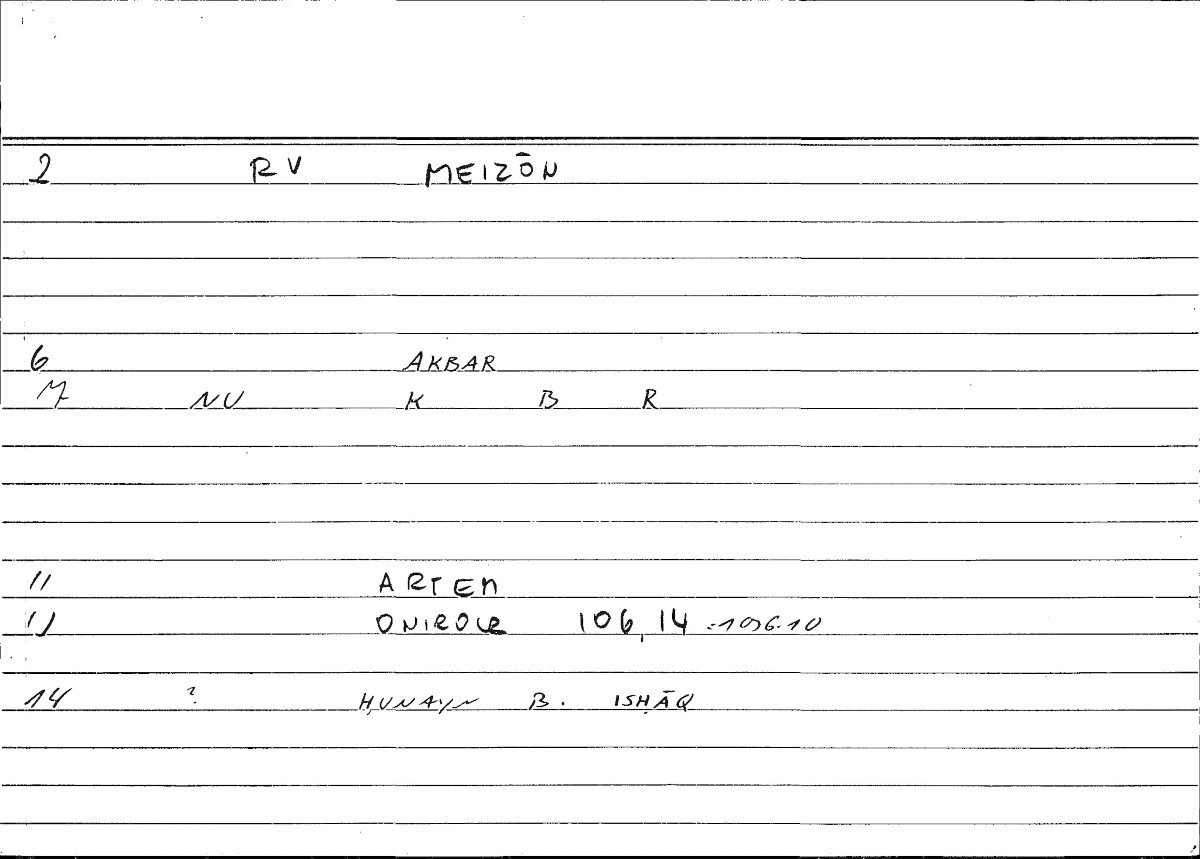 2 RV MEIZŌN
6 AKBAR
7 NU K B R
11 ARTEM
12 ONIROCR 106,14 :106.10
14 ? ḤUNAYN B. ISḤĀQ